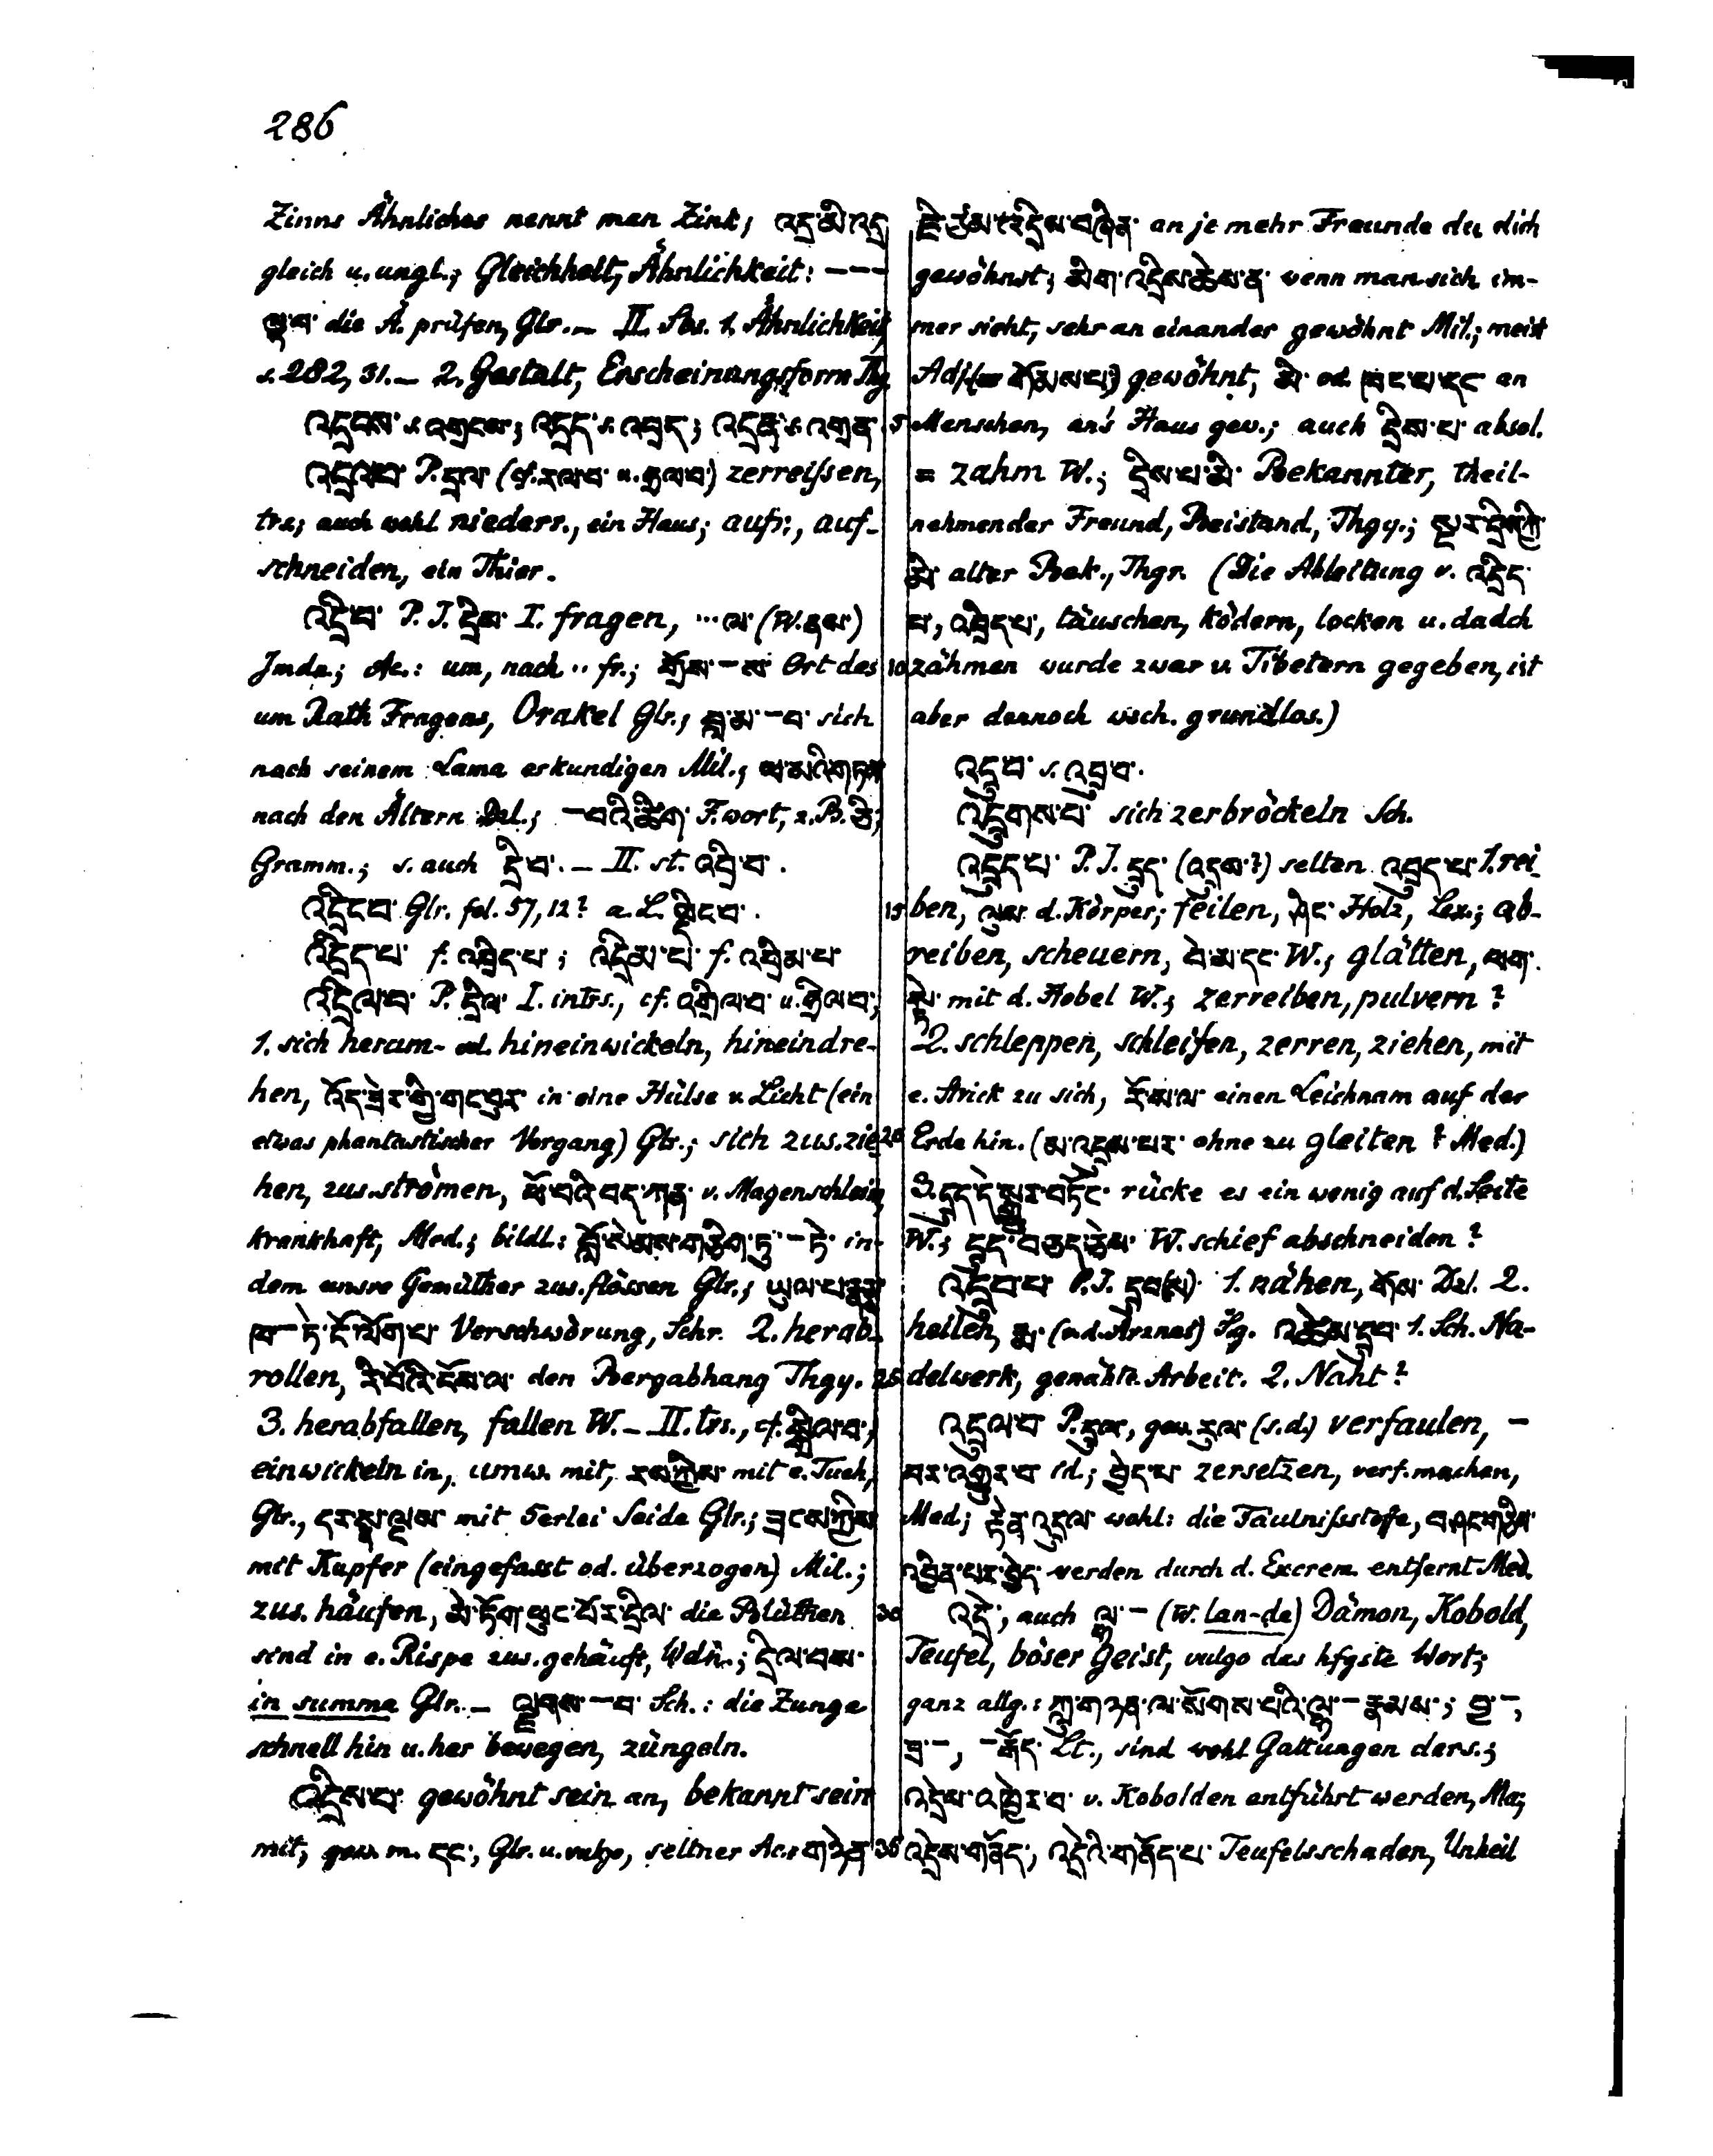 286
Zinns Ähnliches nennt man Zink; འདྲ་མི་འདྲ
gleich u. ungl.; Gleichheit, Ähnlichkeit: ---
ལྟ་བ་ die Ä. prüfen, Glr. – II. Sbs. 1. Ähnlichkeit,
s. 282, 31. – 2. Gestalt, Erscheinungsform Thg.
འདྲངས་ s. འགྲངས་; འདྲད་ s. འབྲད་; འདྲན་ s. འགྲན་
འདྲལ་བ་ P. དྲལ་ (cf. རལ་བ་ u. ཧྲལ་བ་) zerreissen,
trs; auch wohl niederr., ein Haus; aufr., auf-
schneiden, ein Thier.
འདྲི་བ་ P. J. དྲིས་ I. fragen, ··· ལ་ (W. ནས་)
Jmdn.; Ac.: um, nach ·· fr.; གྲོས་ – ས་ Ort des
um Rath Fragens, Orakel Glr.; བླ་མ་ – བ་ sich
nach seinem Lama erkundigen Mil.;
nach den Ältern Dzl.; – བའི་ཚིག་ F.wort, z. B. ཅི་,
Gramm.; s. auch དྲི་བ་. – II. st. འབྲི་བ་.
འདྲིང་བ་ Glr. fol. 57, 12? a. L. ལྡིང་བ་.
འདྲིད་པ་ f. འབྲིད་པ་; འདྲིམ་པ་ f. འགྲིམ་པ་
འདྲིལ་བ་ P. དྲིལ་ I. intrs., cf. འགྲིལ་བ་ u. ཧྲིལ་བ་;
1. sich herum- od. hineinwickeln, hineindre-
hen, འོད་ཟེར་གྱི་གང་བུར་ in eine Hülse v. Licht (ein
etwas phantastischer Vorgang) Glr.; sich zus.zie-
hen, zus.strömen, ཕོ་བའི་བད་ཀན་ v. Magenschleim,
krankhaft, Med.; bildl.: བློ་སེམས་གཅིག་ཏུ་ – ཏེ་ in-
dem unsre Gemüther zus.flössen Glr.;
ཁ – ཏེ་ངོ་ལོག་པ་ Verschwörung, Schr. 2. herab-
rollen, རི་བོའི་ངོས་ལ་ den Bergabhang Thgy.
3. herabfallen, fallen W. – II. trs., cf. སྒྲིལ་བ་,
einwickeln in, umw. mit, རས་ཀྱིས་ mit e. Tuch,
Glr., དར་སྣ་ལྔས་ mit 5erlei Seide Glr.; ཟངས་ཀྱིས་
mit Kupfer (eingefasst od. überzogen) Mil.;
zus. häufen, མེ་ཏོག་ཕུང་པོར་དྲིལ་ die Blüthen
sind in e. Rispe zus.gehäuft, Wdn.; དྲིལ་བས་
in summa Glr. – ལྗགས་ – བ་ Sch.: die Zunge
schnell hin u. her bewegen, züngeln.
འདྲིས་པ་ gewöhnt sein an, bekannt sein
mit, gew. m. དང་, Glr. u. vulgo, seltner Ac.: གཉེན་
ཇེ་ཙམ་འདྲིས་བཞིན་ an je mehr Freunde du dich
gewöhnst; མིག་འདྲིས་ཆེས་ན་ wenn man sich im-
mer sieht, sehr an einander gewöhnt Mil.; meist
Adj. (= གོམས་པ་) gewöhnt, མི་ od. ཁང་པ་དང་ an
5 Menschen, an's Haus gew.; auch དྲིས་པ་ absol.
= zahm W.; དྲིས་པ་མི་ Bekannter, theil-
nehmender Freund, Beistand, Thgy.; སྔར་འདྲིས་ཀྱི་
མི་ alter Bek., Thgr. (Die Ableitung v. འདྲིད་
པ་, འབྲིད་པ་, täuschen, ködern, locken u. dadch
10 zähmen wurde zwar v. Tibetern gegeben, ist
aber dennoch wsch. grundlos.)
འདྲུ་བ་ s. འབྲུ་བ་.
འདྲུགས་པ་ sich zerbröckeln Sch.
འདྲུད་པ་ P. J. དྲུད་ (འདྲུས་?) selten འབྲུད་པ་ 1. rei-
15 ben, ལུས་ d. Körper; feilen, ཤིང་ Holz, Lex.; ab-
reiben, scheuern, བེ་མ་དང་ W.; glätten, པག་
སྟེ་ mit d. Hobel W.; zerreiben, pulvern?
2. schleppen, schleifen, zerren, ziehen, mit
e. Strick zu sich, རོ་ས་ལ་ einen Leichnam auf der
20 Erde hin. (མ་འདྲུས་པར་ ohne zu gleiten? Med.)
3. rücke es ein wenig auf d. Seite
W.; དྲུད་བཅད་ཅེས་ W. schief abschneiden?
འདྲུབ་པ་ P. J. དྲུབ(ས) 1. nähen, གོས་ Dzl. 2.
heilen, རྨ་ (v. d. Arznei) Lg. འཚེམ་དྲུབ་ 1. Sch. Na-
25 delwerk, genähte Arbeit. 2. Naht?
འདྲུལ་བ་ P. དྲུལ་, gew. རུལ་ (s. d.) verfaulen, –
བར་འགྱུར་བ་ id.; བྱེད་པ་ zersetzen, verf. machen,
Med; རྟེན་འདྲུལ་ wohl: die Fäulnissstoffe, བཤང་གཅིས་
འབྱིན་པར་བྱེད་ werden durch d. Excrem. entfernt Med.
30 འདྲེ་, auch ལྷ་ – (W. lan-de) Dämon, Kobold,
Teufel, böser Geist, vulgo das hfgste Wort;
ganz allg.: ཀླུ་གཉན་ལ་སོགས་པའི་ལྷ་ – རྣམས་; བྱ་ –,
ཟ་ –, – རྒོད་ Lt., sind wohl Gattungen ders.;
འདྲེས་འཁྱེར་བ་ v. Kobolden entführt werden, Ma;
35 འདྲེས་གནོད་, འདྲེའི་གནོད་པ་ Teufelsschaden, Unheil